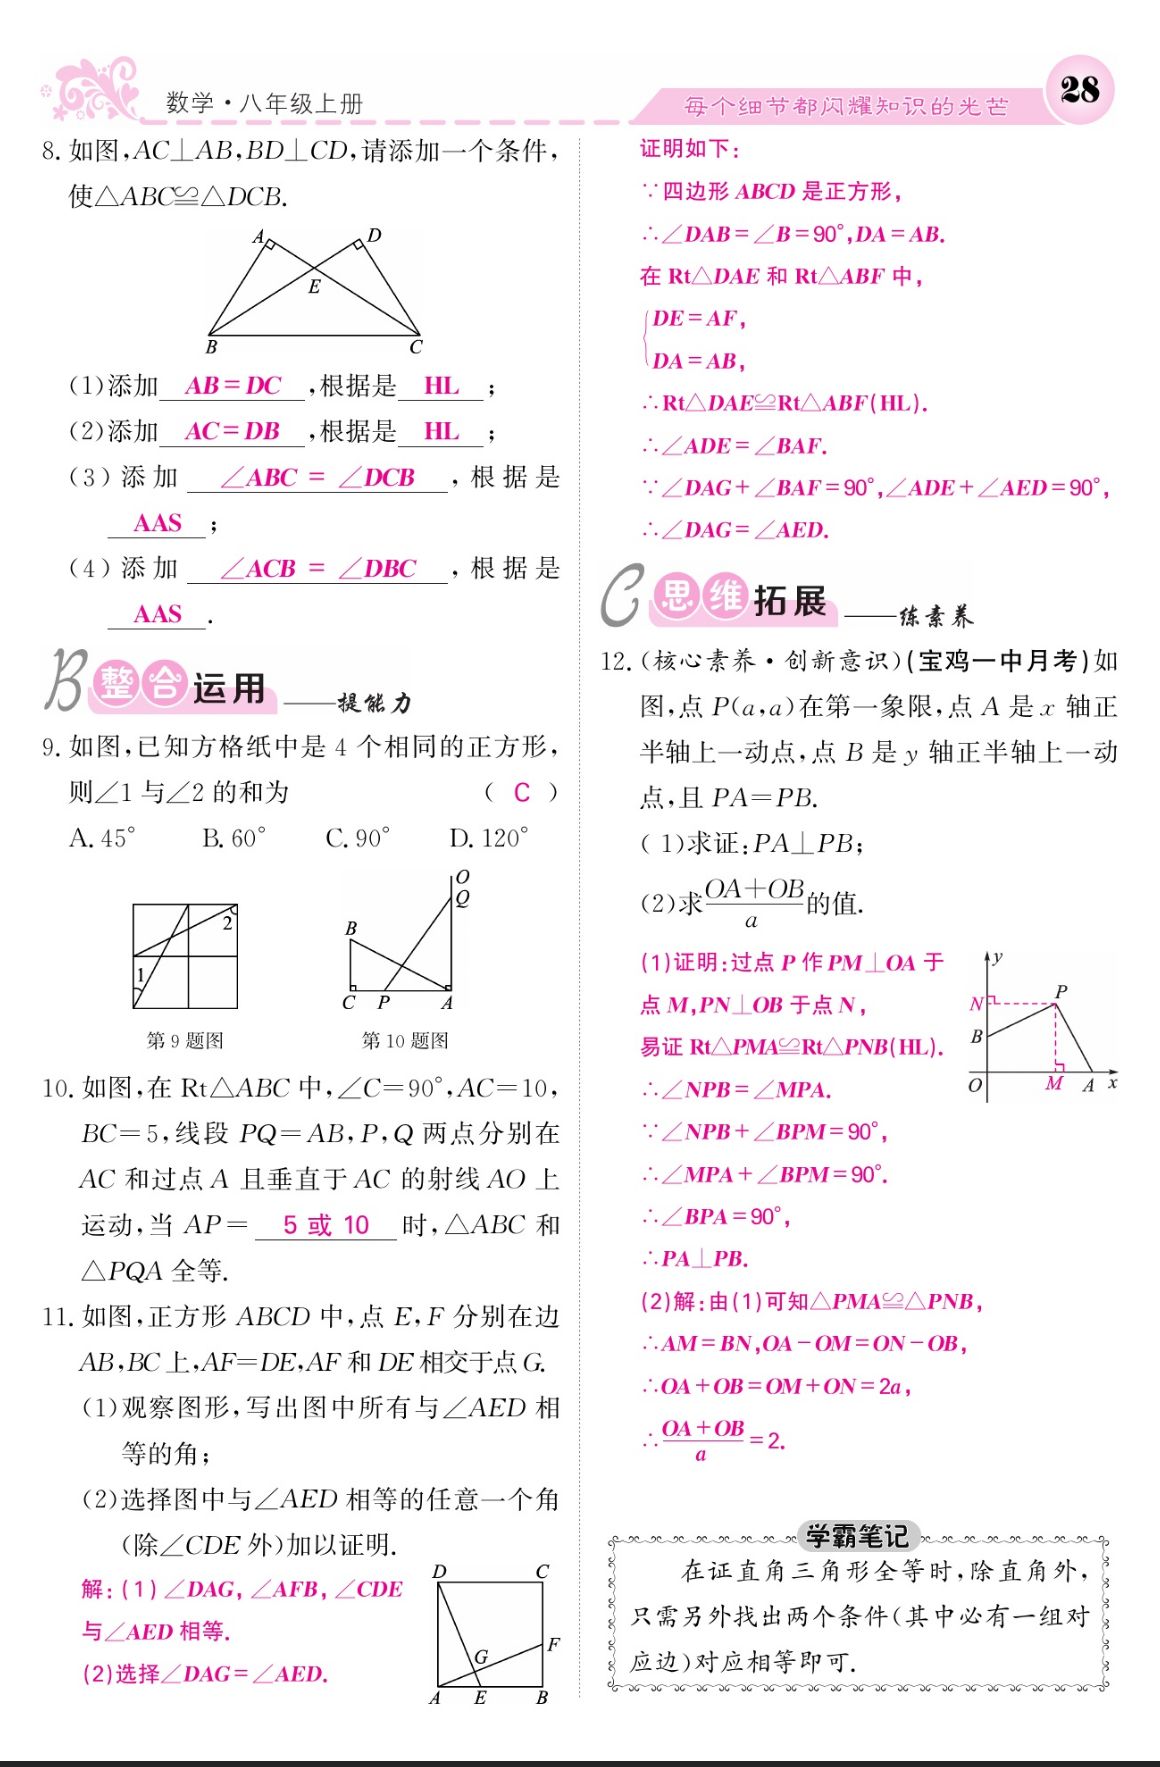 数学·八年级上册
每个细节都闪耀知识的光芒
28
8. 如图,AC⊥AB,BD⊥CD,请添加一个条件,
使△ABC≌△DCB.
A
D
E
B
C
(1)添加 AB=DC ,根据是 HL ;
(2)添加 AC=DB ,根据是 HL ;
(3)添加 ∠ABC = ∠DCB ,根据是
AAS ;
(4)添加 ∠ACB = ∠DBC ,根据是
AAS .
B 整合运用 ——提能力
9. 如图,已知方格纸中是 4 个相同的正方形,
则∠1与∠2的和为 ( C )
A. 45° B. 60° C. 90° D. 120°
2
1
第 9 题图
O
Q
B
C P A
第 10 题图
10. 如图,在 Rt△ABC 中,∠C=90°,AC=10,
BC=5,线段 PQ=AB,P,Q 两点分别在
AC 和过点 A 且垂直于 AC 的射线 AO 上
运动,当 AP= 5 或 10 时,△ABC 和
△PQA 全等.
11. 如图,正方形 ABCD 中,点 E,F 分别在边
AB,BC 上,AF=DE,AF 和 DE 相交于点 G.
(1)观察图形,写出图中所有与∠AED 相
等的角;
(2)选择图中与∠AED 相等的任意一个角
(除∠CDE 外)加以证明.
解:(1)∠DAG,∠AFB,∠CDE
与∠AED 相等.
(2)选择∠DAG=∠AED.
D C
F
G
A E B
证明如下:
∵四边形 ABCD 是正方形,
∴∠DAB=∠B=90°,DA=AB.
在 Rt△DAE 和 Rt△ABF 中,
{DE=AF,
DA=AB,
∴Rt△DAE≌Rt△ABF(HL).
∴∠ADE=∠BAF.
∵∠DAG+∠BAF=90°,∠ADE+∠AED=90°,
∴∠DAG=∠AED.
C 思维拓展 ——练素养
12. (核心素养·创新意识)(宝鸡一中月考)如
图,点 P(a,a)在第一象限,点 A 是 x 轴正
半轴上一动点,点 B 是 y 轴正半轴上一动
点,且 PA=PB.
(1)求证:PA⊥PB;
(2)求(OA+OB)/a的值.
(1)证明:过点 P 作 PM⊥OA 于
点 M,PN⊥OB 于点 N,
易证 Rt△PMA≌Rt△PNB(HL).
∴∠NPB=∠MPA.
∵∠NPB+∠BPM=90°,
∴∠MPA+∠BPM=90°.
∴∠BPA=90°,
∴PA⊥PB.
y
P
N
B
O M A x
(2)解:由(1)可知△PMA≌△PNB,
∴AM=BN,OA-OM=ON-OB,
∴OA+OB=OM+ON=2a,
∴(OA+OB)/a=2.
学霸笔记
在证直角三角形全等时,除直角外,
只需另外找出两个条件(其中必有一组对
应边)对应相等即可.